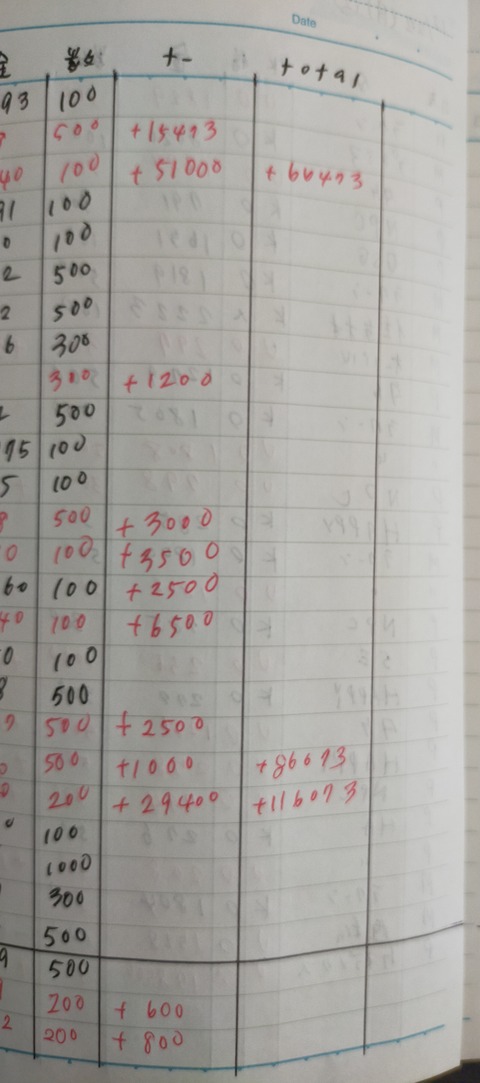 Date
金 数 +- total
93 100
500 +15473
40 100 +51000 +66473
91 100
0 100
2 500
2 500
6 300
300 +1200
2 500
95 100
5 100
8 500 +3000
0 100 +3500
60 100 +2500
40 100 +6500
0 100
8 500
9 500 +2500
0 500 +1000 +86673
0 200 +29400 +116073
0 100
1000
300
500
9 500
200 +600
2 200 +800